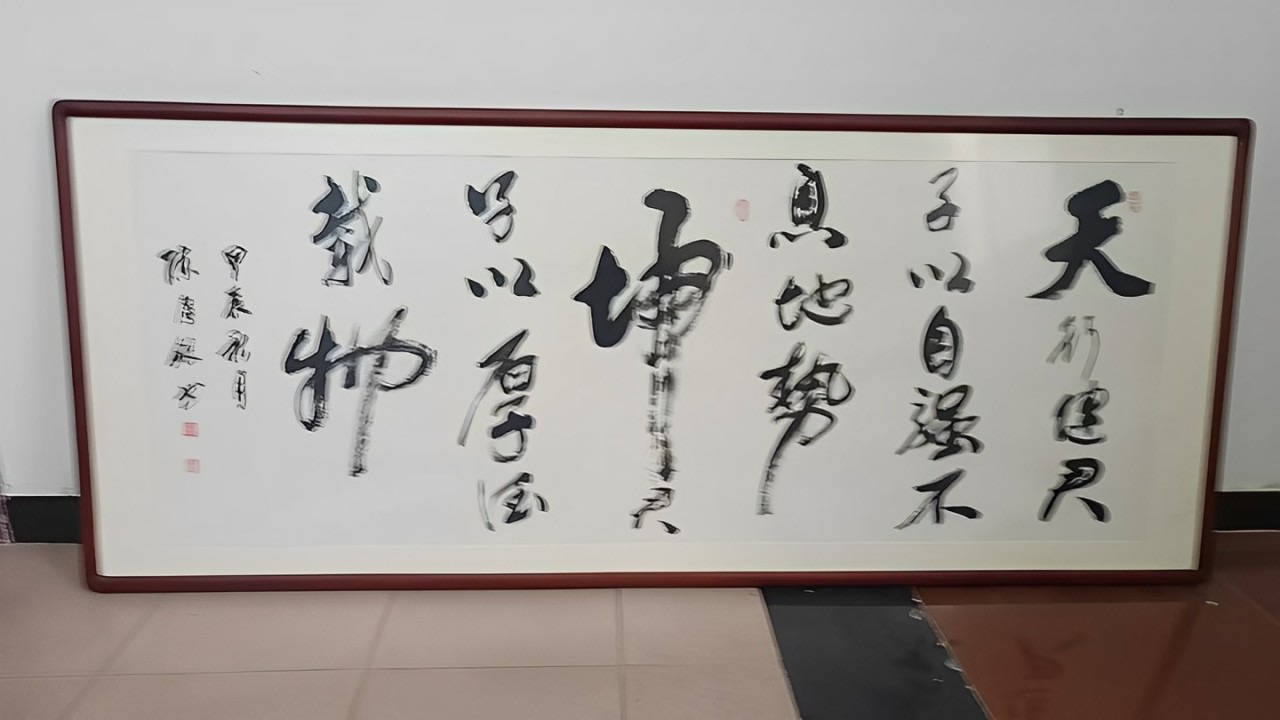 天行健君
子以自强不
息地势
坤君
子以厚德
载物
甲辰秋月
陈